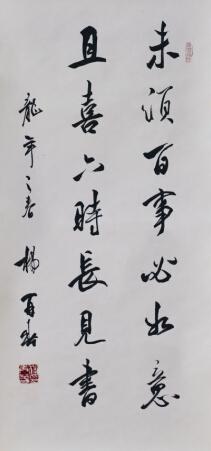 未須百事必如意
且喜六時長見書
龍年之春 楊再春